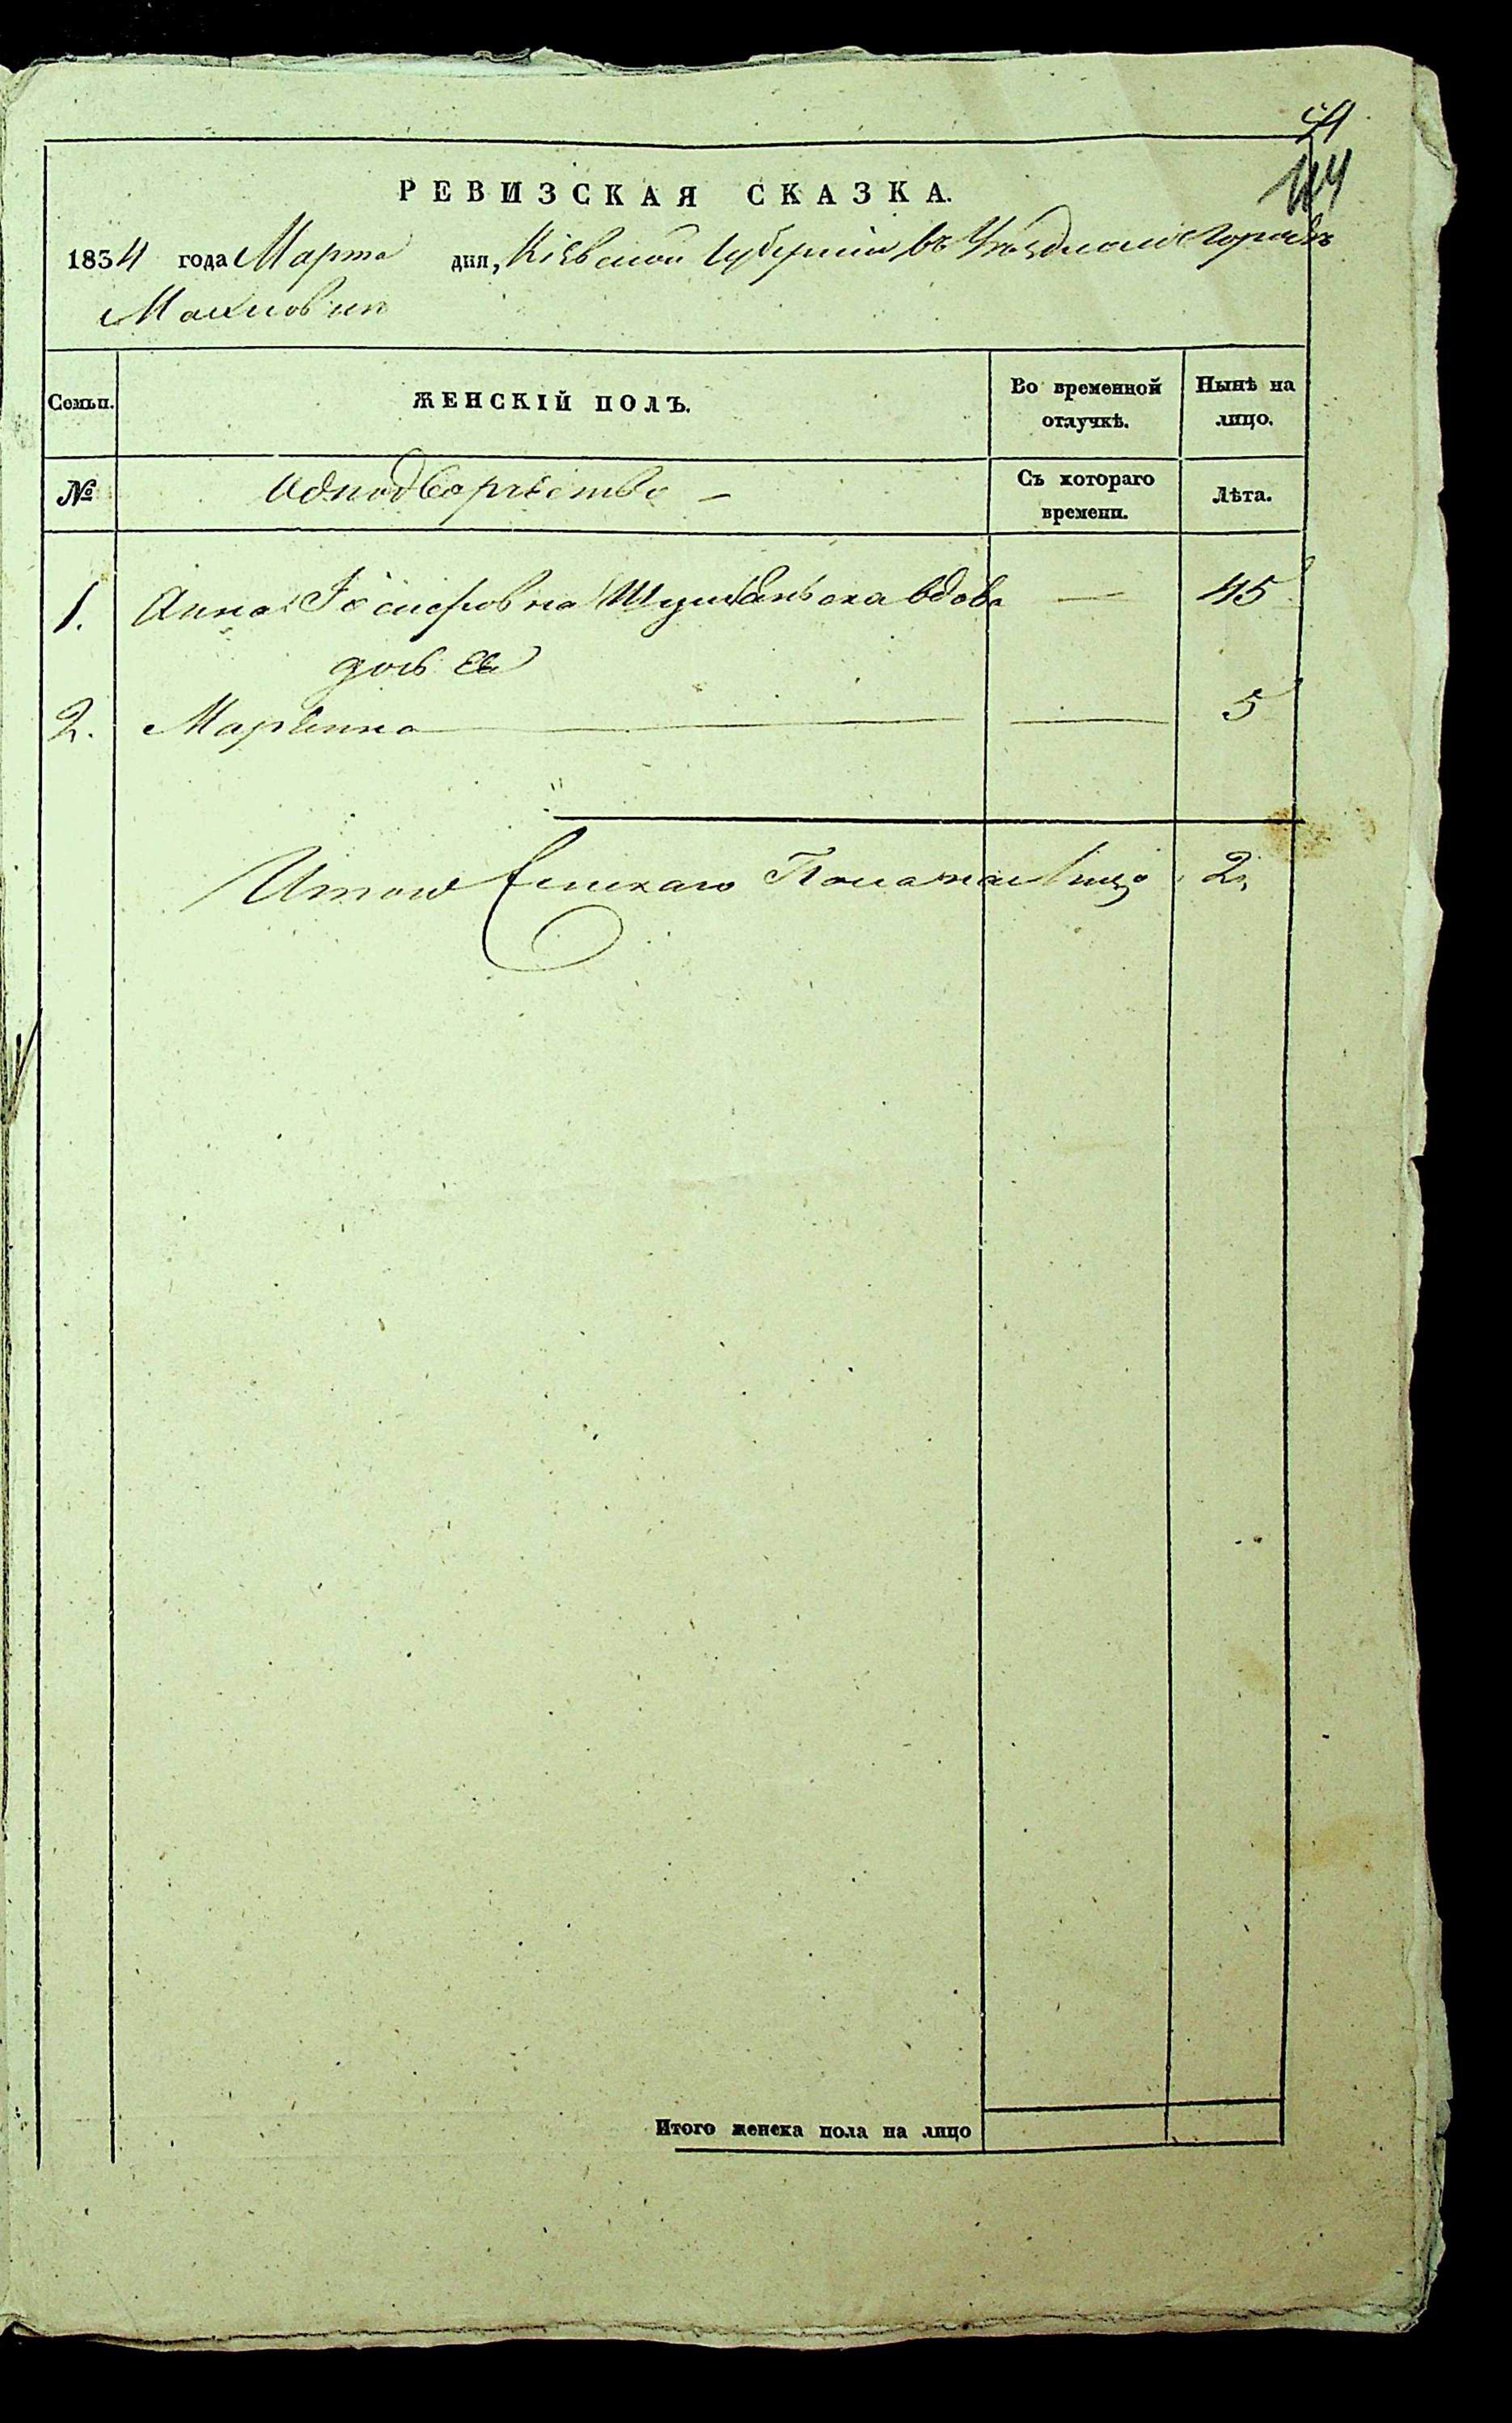 РЕВИЗСКАЯ СКАЗКА.
1834 года Марта дня, Кіевской Губерніи въ Уѣздномъ Городѣ
Махновки
Семьи. ЖЕНСКІЙ ПОЛЪ. Во временной отлучкѣ. Нынѣ на лицо.
№ Однодворчество — Съ котораго времени. Лѣта.
1. Анна Іосифовна вдова — 45
дочь ее
2. Маріянна — — 5
Итого Женскаго Пола на лицо 2
Итого женска пола на лицо